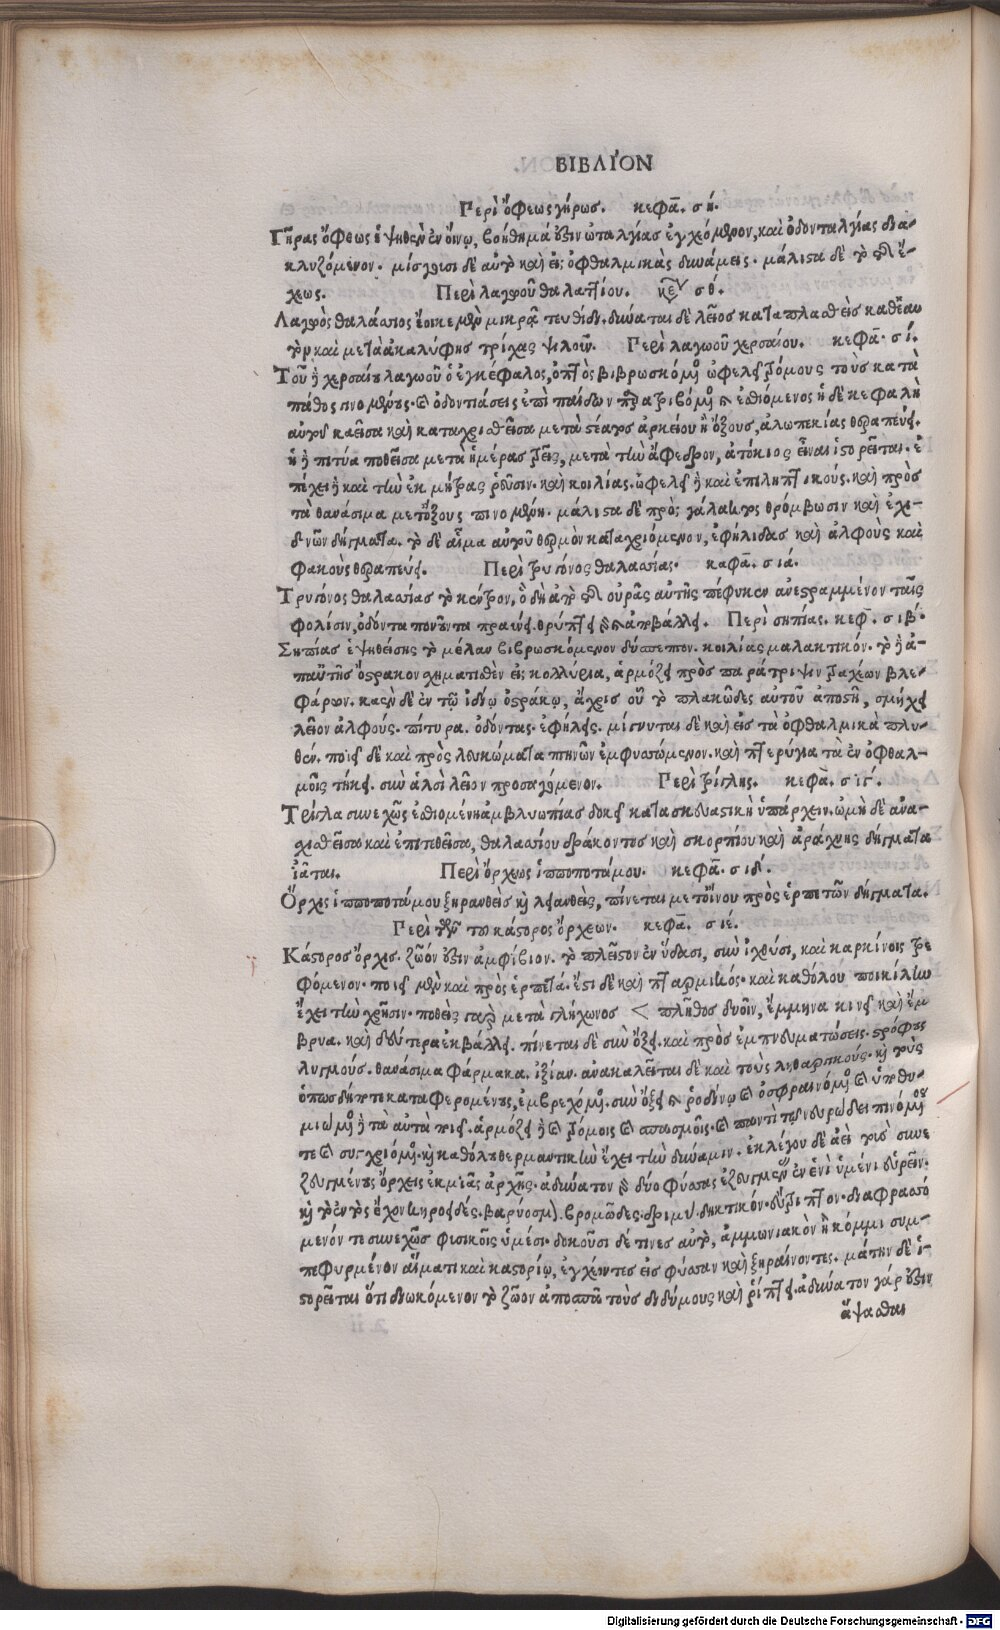 ΒΙΒΛΙΟΝ
Περὶ ὄφεως γήρως. κεφα. σ ή.
Γῆρας ὄφεως ἑψηθὲν ἐν οἴνῳ, βοήθημά ἐστιν ὠταλγίας ἐγχεόμενον, καὶ ὀδονταλγίας δια-
κλυζόμενον. μίσγουσι δὲ αὐτὸ καὶ εἰς ὀφθαλμικὰς δυνάμεις. μάλιστα δὲ τὸ τοῦ ἔ-
χεως. Περὶ λαγωοῦ θαλαττίου. κεφ σ θ.
Λαγωὸς θαλάσσιος ἔοικε μὲν μικρᾷ τευθίδι. δύναται δὲ λεῖος καταπλασθεὶς καθ' ἑαυ
τὸν καὶ μετὰ ἀκαλύφης τρίχας ψιλοῦν. Περὶ λαγωοῦ χερσαίου. κεφα. σ ί.
Τοῦ δὲ χερσαίου λαγωοῦ ὁ ἐγκέφαλος, ὀπτὸς βιβρωσκόμενος ὠφελεῖ τρόμους τοὺς κατὰ
πάθος γινομένους. καὶ ὀδοντιάσεις ἐπὶ παίδων παρατριβόμενος καὶ ἐσθιόμενος ἡ δὲ κεφαλὴ
αὐτοῦ καεῖσα καὶ καταχρισθεῖσα μετὰ στέατος ἀρκείου ἢ ὄξους, ἀλωπεκίας θεραπεύει.
ἡ δὲ πιτύα ποθεῖσα μετὰ ἡμέρας τρεῖς, μετὰ τὴν ἄφεδρον, ἀτόκιος εἶναι ἱστορεῖται. ἐ
πέχει δὲ καὶ τὴν ἐκ μήτρας ῥεῦσιν. καὶ κοιλίας. ὠφελεῖ δὲ καὶ ἐπιληπτικούς. καὶ πρὸς
τὰ θανάσιμα μετ' ὄξους πινομένη. μάλιστα δὲ πρὸς γάλακτος θρόμβωσιν καὶ ἐχι-
δνῶν δήγματα. τὸ δὲ αἷμα αὐτοῦ θερμὸν καταχριόμενον, ἐφήλιδας καὶ ἀλφοὺς καὶ
φακοὺς θεραπεύει. Περὶ τρυγόνος θαλασσίας. κεφα. σ ιά.
Τρυγόνος θαλασσίας τὸ κέντρον, ὃ δὴ ἀπὸ τοῦ οὐρᾶς αὐτῆς πέφυκεν ἀνεστραμμένον ταῖς
φολίσιν, ὀδόντα πονοῦντα πραΰνει. θρύπτει γὰρ καὶ ἀποβάλλει. Περὶ σηπίας. κεφ. σ ιβ.
Σηπίας ἑψηθείσης τὸ μέλαν βιβρωσκόμενον δύσπεπτον. κοιλίας μαλακτικόν. τὸ δὲ ἀ-
π' αὐτῆς ὄστρακον σχηματισθὲν εἰς κολλύρια, ἁρμόζει πρὸς παράτριψιν τραχέων βλε-
φάρων. καὲν δὲ ἐν τῷ ἰδίῳ ὀστράκῳ, ἄχρις οὗ τὸ πλακῶδες αὐτοῦ ἀποστῇ, σμήχει
λεῖον ἀλφούς. πίτυρα. ὀδόντας. ἐφήλεις. μίγνυται δὲ καὶ εἰς τὰ ὀφθαλμικὰ πλυ-
θέν. ποιεῖ δὲ καὶ πρὸς λευκώματα πτηνῶν ἐμφυσώμενον. καὶ πτερύγια τὰ ἐν ὀφθαλ-
μοῖς τήκει. σὺν ἁλσὶ λεῖον προσαγόμενον. Περὶ τρίγλης. κεφα. σ ιγ.
Τρίγλα συνεχῶς ἐσθιομένη ἀμβλυωπίας δοκεῖ κατασκευαστικὴ ὑπάρχειν. ὠμὴ δὲ ἀνα-
σχισθεῖσα καὶ ἐπιτεθεῖσα, θαλασσίου δράκοντος καὶ σκορπίου καὶ ἀράχνης δήγματα
ἰᾶται. Περὶ ὄρχεως ἱπποποτάμου. κεφα. σ ιδ.
Ὄρχις ἱπποποτάμου ξηρανθεὶς καὶ λεανθεὶς, πίνεται μετ' οἴνου πρὸς ἑρπετῶν δήγματα.
Περὶ τῶν τοῦ κάστορος ὄρχεων. κεφα. σ ιέ.
Κάστορος ὄρχις. ζῶόν ἐστιν ἀμφίβιον. τὸ πλεῖστον ἐν ὕδασι, σὺν ἰχθύσι, καὶ καρκίνοις τρε
φόμενον. ποιεῖ μὲν καὶ πρὸς ἑρπετά. ἔστι δὲ καὶ πταρμικός. καὶ καθόλου ποικίλην
ἔχει τὴν χρῆσιν. ποθεὶς γὰρ μετὰ γλήχωνος < πλῆθος δυοῖν, ἔμμηνα κινεῖ καὶ ἔμ
βρυα. καὶ δεύτερα ἐκβάλλει. πίνεται δὲ σὺν ὄξει. καὶ πρὸς ἐμπνευματώσεις. στρόφους
λυγμούς. θανάσιμα φάρμακα. ἰξίαν. ἀνακαλεῖται δὲ καὶ τοὺς ληθαργικούς. καὶ τοὺς
ὁπωσδήποτε καταφερομένους, ἐμβρεχόμενος. σὺν ὄξει καὶ ῥοδίνῳ καὶ ὀσφραινόμενος καὶ ὑποθυ-
μιώμενος δὲ τὰ αὐτὰ ποιεῖ. ἁρμόζει δὲ καὶ τρόμοις καὶ σπασμοῖς. καὶ παντὶ τῷ νευρώδει πινόμενος
τε καὶ συγχριόμενος. καὶ καθόλου θερμαντικὴν ἔχει τὴν δύναμιν. ἐκλέγου δὲ ἀεὶ τοὺς συνε
ζευγμένους ὄρχεις ἐκ μιᾶς ἀρχῆς. ἀδύνατον γὰρ δύο φύσας ἐζευγμένας ἐν ἑνὶ ὑμένι εὑρεῖν.
καὶ τὸ ἐντὸς ἔχον κηροειδές. βαρύοσμον. βρομῶδες. δριμύ. δηκτικόν. εὔτριπτον. διαφρασσό
μενόν τε συνεχῶς φυσικοῖς ὑμέσι. δοκοῦσι δέ τινες αὐτὸ, ἀμμωνιακὸν ἢ κόμμι συμ-
πεφυρμένον αἵματι καὶ καστορίῳ, ἐγχέοντες εἰς φύσαν καὶ ξηραίνοντες. μάτην δὲ ἱ-
στορεῖται ὅτι διωκόμενον τὸ ζῶον ἀποσπᾶ τοὺς διδύμους καὶ ῥίπτει. ἀδύνατον γάρ ἐστιν
ἅψασθαι
Digitalisierung gefördert durch die Deutsche Forschungsgemeinschaft - DFG